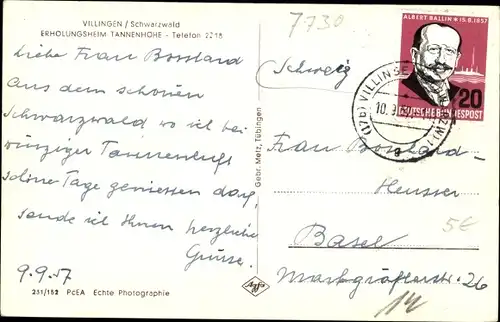 VILLINGEN / Schwarzwald
ERHOLUNGSHEIM TANNENHÖHE - Telefon 2218
Liebe Frau Bossland
Aus dem schönen
Schwarzwald wo ich bei
würziger Tannenluft
schöne Tage geniessen darf
sende ich Ihnen herzliche
Grüsse.
9.9.57
251/152 PcEA Echte Photographie
Gebr. Metz, Tübingen
Agfa
7730
ALBERT BALLIN * 15.8.1857
20
DEUTSCHE BUNDESPOST
(17b) VILLINGEN
10.9.
Schweiz
Frau Bossland-
Heusser
5€
Basel
Markgräflerstr. 26